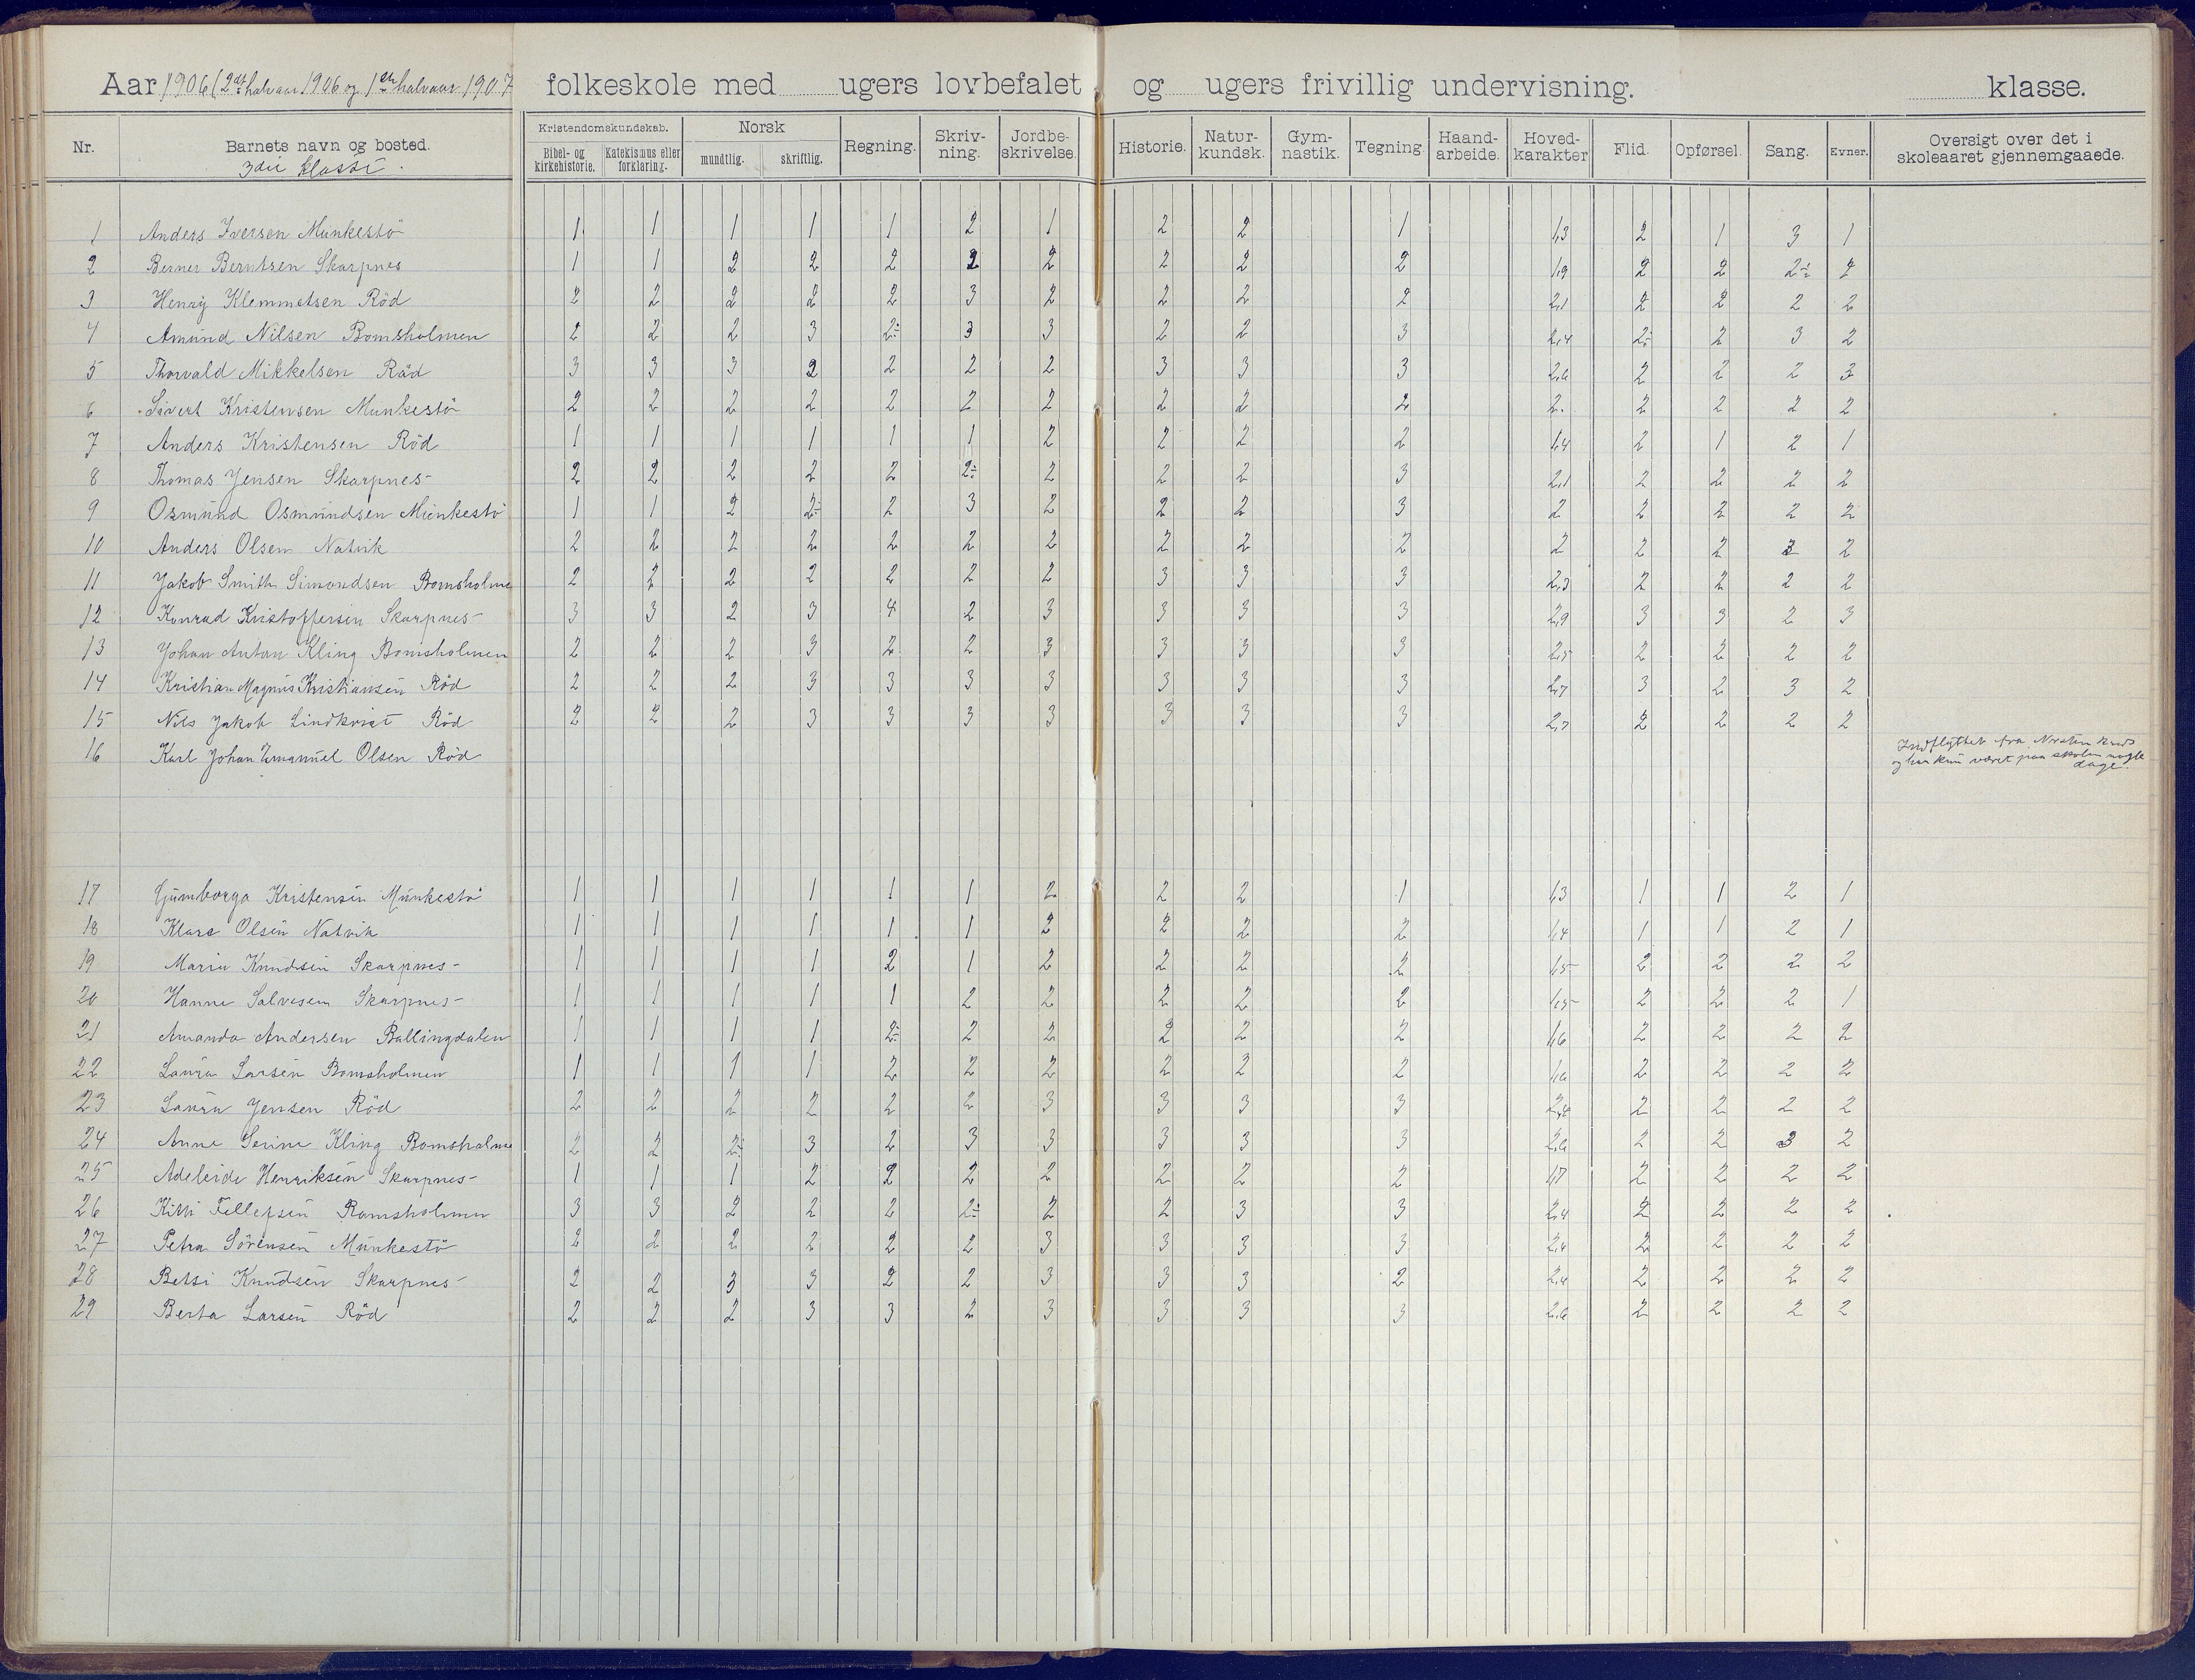 Aar 1906 (2det halvaar 1906 og 1ste halvaar 1907 folkeskole med ugers lovbefalet og ugers frivillig undervisning. klasse.
Nr. Barnets navn og bosted. Kristendomskundskab. Bibel- og kirkehistorie. Katekismus eller forklaring. Norsk mundtlig. skriftlig. Regning. Skriv-ning. Jordbe-skrivelse. Historie. Natur-kundsk. Gym-nastik. Tegning. Haand-arbeide. Hoved-karakter Flid. Opførsel. Sang. Evner. Oversigt over det i skoleaaret gjennemgaaede.
3die klasse.
1 Anders Iversen Munkestö 1 1 1 1 1 2 1 2 2 1 1,3 2 1 3 1
2 Berner Berntsen Skarpnes 1 1 2 2 2 2 2 2 2 2 1,9 2 2 2÷ 2
3 Henry Klemmetsen Röd 2 2 2 2 2 3 2 2 2 2 2,1 2 2 2 2
4 Amund Nilsen Bomsholmen 2 2 2 3 2÷ 3 3 2 2 3 2,4 2÷ 2 3 2
5 Thorvald Mikkelsen Röd 3 3 3 2 2 2 2 3 3 3 2,6 2 2 2 3
6 Sivert Kristensen Munkestö 2 2 2 2 2 2 2 2 2 2 2. 2 2 2 2
7 Anders Kristensen Röd 1 1 1 1 1 1 2 2 2 2 1,4 2 1 2 1
8 Thomas Jensen Skarpnes 2 2 2 2 2 2÷ 2 2 2 3 2,1 2 2 2 2
9 Osmund Osmundsen Munkestö 1 1 2 2÷ 2 3 2 2 2 3 2 2 2 2 2
10 Anders Olsen Natvik 2 2 2 2 2 2 2 2 2 2 2 2 2 3 2
11 Jakob Smith Simondsen Bomsholme 2 2 2 2 2 2 2 3 3 3 2,3 2 2 2 2
12 Konrad Kristoffersen Skarpnes 3 3 2 3 4 2 3 3 3 3 2,9 3 3 2 3
13 Johan Anton Kling Bomsholmen 2 2 2 3 2 2 3 3 3 3 2,5 2 2 2 2
14 Kristian Magnus Kristiansen Röd 2 2 2 3 3 3 3 3 3 3 2,7 3 2 3 2
15 Nils Jakob Lindkvist Röd 2 2 2 3 3 3 3 3 3 3 2,7 2 2 2 2
16 Karl Johan Emanuel Olsen Röd Indflyttet fra
og har kun været paa skolen nogle
dage.
17 Gumborga Kristensen Munkestö 1 1 1 1 1 1 2 2 2 1 1,3 1 1 2 1
18 Klara Olsen Natvik 1 1 1 1 1 1 2 2 2 2 1,4 1 1 2 1
19 Maria Knudsen Skarpnes 1 1 1 1 2 1 2 2 2 2 1,5 2 2 2 2
20 Hanne Salvesen Skarpnes 1 1 1 1 1 2 2 2 2 2 1,5 2 2 2 1
21 Amanda Andersen Ballingdalen 1 1 1 1 2÷ 2 2 2 2 2 1,6 2 2 2 2
22 Laura Larsen Bomsholmen 1 1 1 1 2 2 2 2 2 2 1,6 2 2 2 2
23 Laura Jensen Röd 2 2 2 2 2 2 3 3 3 3 2,4 2 2 2 2
24 Anne Serine Kling Bomsholme 2 2 2÷ 3 2 3 3 3 3 3 2,6 2 2 3 2
25 Adeleide Henriksen Skarpnes 1 1 1 2 2 2 2 2 2 2 1,7 2 2 2 2
26 Kitti Tellefsen Bomsholmen 3 3 2 2 2 2÷ 2 2 3 3 2,4 2 2 2 2
27 Petra Sörensen Munkestö 2 2 2 2 2 2 3 3 3 3 2,4 2 2 2 2
28 Betsi Knudsen Skarpnes 2 2 3 3 2 2 3 3 3 2 2,4 2 2 2 2
29 Berta Larsen Röd 2 2 2 3 3 2 3 3 3 3 2,6 2 2 2 2